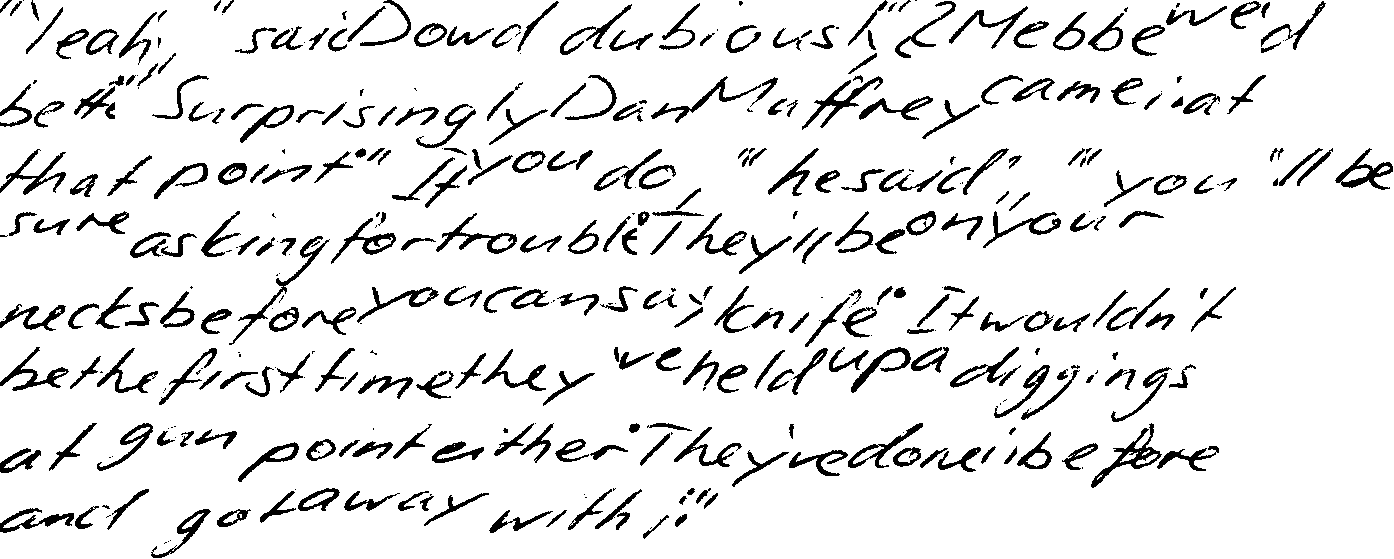 "Yeah," said Dowd dubiously, "Mebbe we'd
better." Surprisingly Dan Muffrey came in at
that point. "If you do," he said, "you'll be
sure asking for trouble. They'll be on your
necks before you can say knife. It wouldn't
be the first time they've held up a diggings
at gun point either. They've done it before
and got away with it."